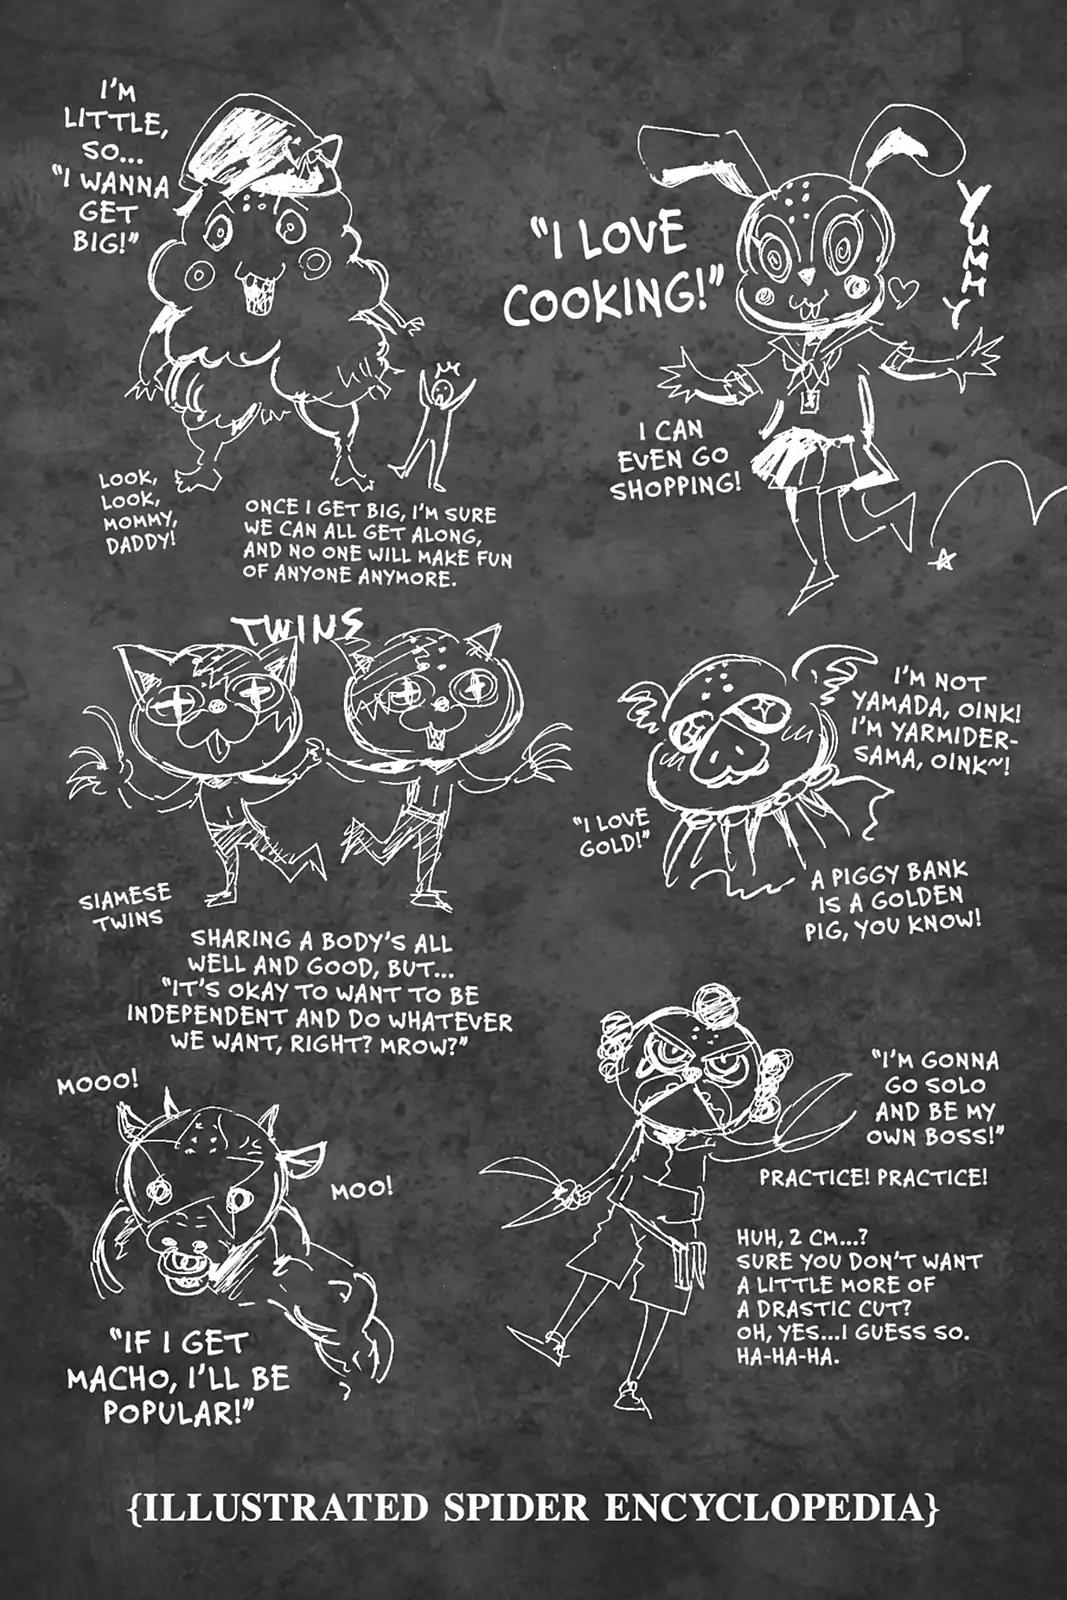 I'M
LITTLE,
SO...
"I WANNA
GET
BIG!"
LOOK,
LOOK,
MOMMY,
DADDY!
ONCE I GET BIG, I'M SURE
WE CAN ALL GET ALONG,
AND NO ONE WILL MAKE FUN
OF ANYONE ANYMORE.
"I LOVE
COOKING!"
YUMMY
I CAN
EVEN GO
SHOPPING!
TWINS
SIAMESE
TWINS
SHARING A BODY'S ALL
WELL AND GOOD, BUT...
"IT'S OKAY TO WANT TO BE
INDEPENDENT AND DO WHATEVER
WE WANT, RIGHT? MROW?"
I'M NOT
YAMADA, OINK!
I'M YARMIDER-
SAMA, OINK~!
"I LOVE
GOLD!"
A PIGGY BANK
IS A GOLDEN
PIG, YOU KNOW!
MOOO!
MOO!
"IF I GET
MACHO, I'LL BE
POPULAR!"
"I'M GONNA
GO SOLO
AND BE MY
OWN BOSS!"
PRACTICE! PRACTICE!
HUH, 2 CM...?
SURE YOU DON'T WANT
A LITTLE MORE OF
A DRASTIC CUT?
OH, YES...I GUESS SO.
HA-HA-HA.
{ILLUSTRATED SPIDER ENCYCLOPEDIA}